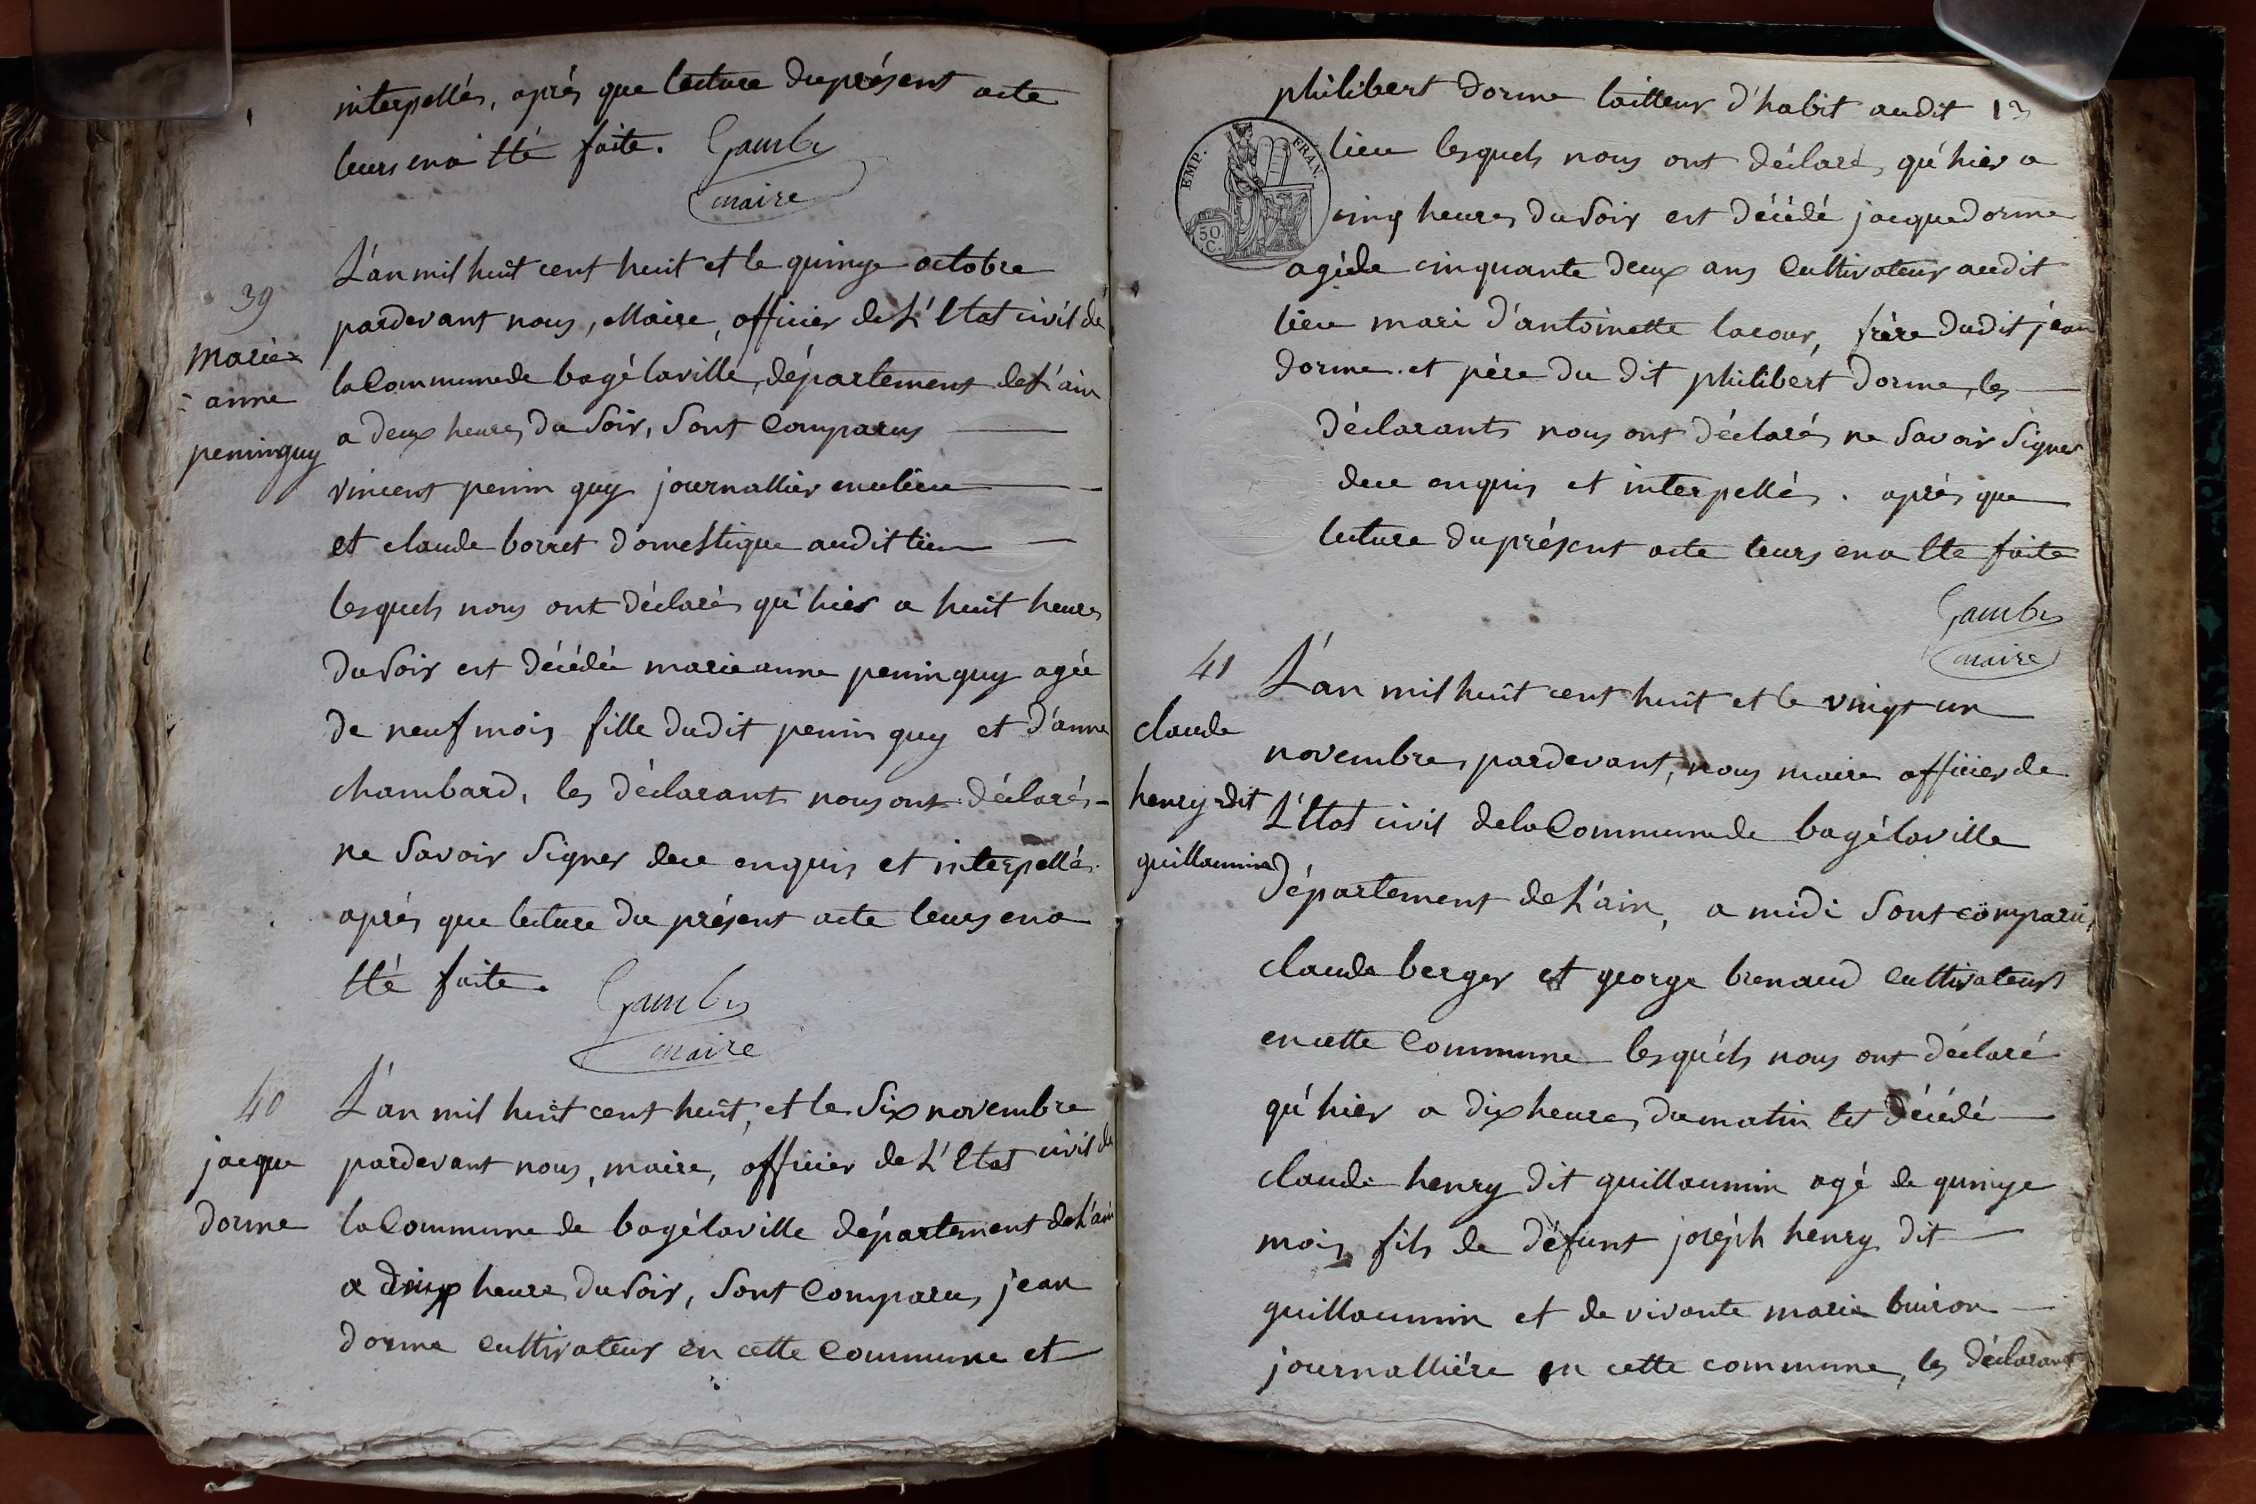 interpellés, après que lecture du présent acte
leurs en a Eté faite. Gambs
maire
39
marie
anne
peninguy
L'an mil huit cent huit et le quinze octobre
pardevant nous, Maire, officier de L'Etat civil de
la Commune de bagélaville, département de L'ain
a deux heures du Soir, Sont Comparus
vincent penin guy journallier en ce lieu
et claude borret domestique audit lieu
lesquels nous ont déclarés qu'hier a huit heures
du Soir est décédée marie anne peninguy agée
de neuf mois fille dudit penin guy et d'anne
chambard, les déclarants nous ont déclarés
ne Savoir Signer de ce enquis et interpellés.
après que lecture du présent acte leurs en a
Eté faite. Gambs
maire
40
jacque
dorme
L'an mil huit cent huit, et le Six novembre
pardevant nous, maire, officier de L'Etat civil de
la Commune de bagélaville département de L'ain
a heure du Soir, Sont Comparus, jean
dorme cultivateur en cette Commune et
13
philibert dorme tailleur d'habit audit
EMP. FRAN.
50 C.
lieu lesquels nous ont déclaré, qu'hier a
cinq heures du Soir est décédé jacque dorme
agé de cinquante deux ans Cultivateur audit
lieu mari d'antoinette lacour, frère dudit jean
dorme. et père du dit philibert dorme, les
déclarants nous ont déclarés ne Savoir Signer
de ce enquis et interpellés. après que
lecture du présent acte leurs en a Eté faite
Gambs
maire
41
claude
henry dit
guillaumin
L'an mil huit cent huit et le vingt un
novembre, pardevant, nous maire officier de
L'Etat civil de la Commune de bagélaville
département de L'ain, a midi Sont comparus,
claude berger et george brenaud cultivateurs
en cette Commune lesquels nous ont déclaré
qu'hier a dix heures du matin Est décédé
claude henry dit guillaumin agé de quinze
mois fils de défunt joséph henry dit
guillaumin et de vivante marie buiron
journallière en cette commune, les déclarant